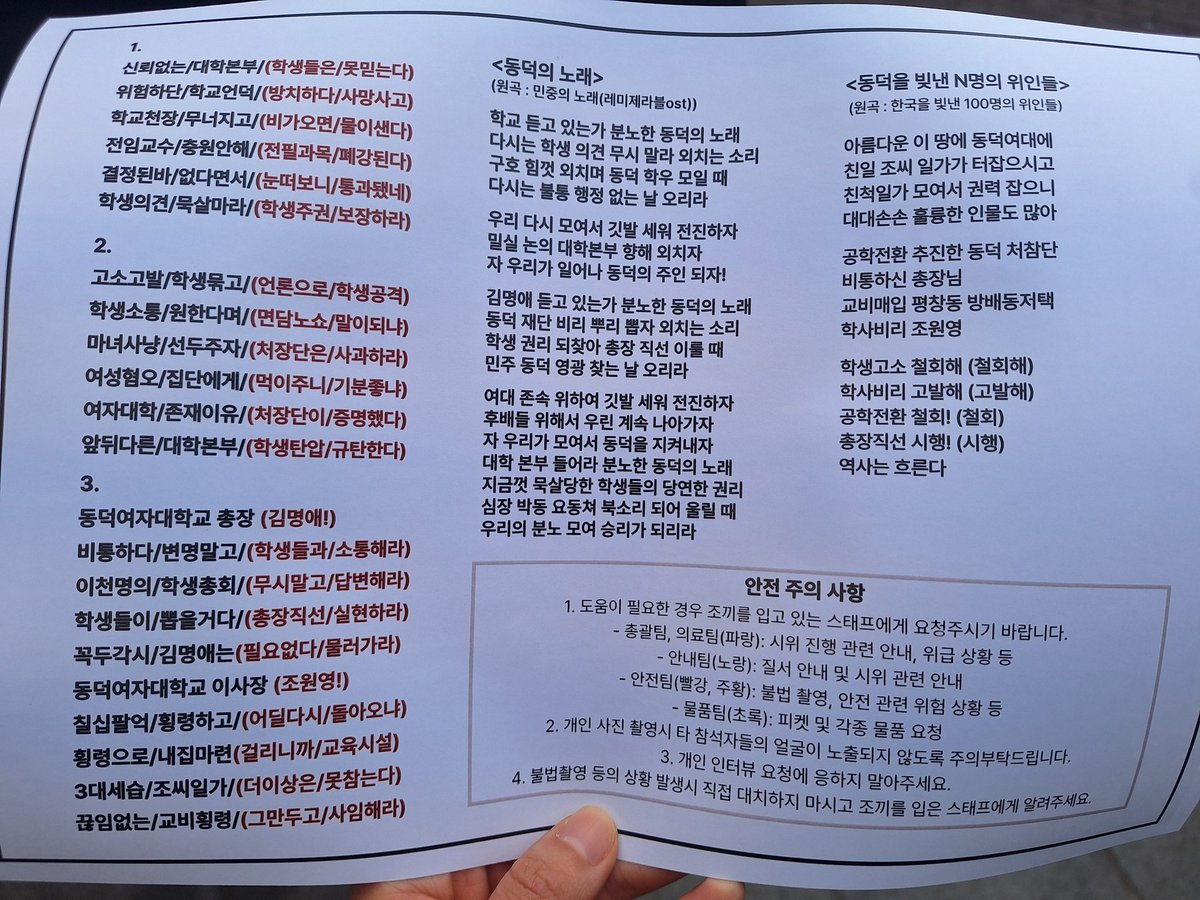 1.
신뢰없는/대학본부/(학생들은/못믿는다)
위험하단/학교언덕/(방치하다/사망사고)
학교천장/무너지고/(비가오면/물이샌다)
전임교수/충원안해/(전필과목/폐강된다)
결정된바/없다면서/(눈떠보니/통과됐네)
학생의견/묵살마라/(학생주권/보장하라)
2.
고소고발/학생묶고/(언론으로/학생공격)
학생소통/원한다며/(면담노쇼/말이되냐)
마녀사냥/선두주자/(처장단은/사과하라)
여성혐오/집단에게/(먹이주니/기분좋냐)
여자대학/존재이유/(처장단이/증명했다)
앞뒤다른/대학본부/(학생탄압/규탄한다)
3.
동덕여자대학교 총장 (김명애!)
비통하다/변명말고/(학생들과/소통해라)
이천명의/학생총회/(무시말고/답변해라)
학생들이/뽑을거다/(총장직선/실현하라)
꼭두각시/김명애는(필요없다/물러가라)
동덕여자대학교 이사장 (조원영!)
칠십팔억/횡령하고/(어딜다시/돌아오냐)
횡령으로/내집마련(걸리니까/교육시설)
3대세습/조씨일가/(더이상은/못참는다)
끊임없는/교비횡령/(그만두고/사임해라)
<동덕의 노래>
(원곡 : 민중의 노래(레미제라블ost))
학교 듣고 있는가 분노한 동덕의 노래
다시는 학생 의견 무시 말라 외치는 소리
구호 힘껏 외치며 동덕 학우 모일 때
다시는 불통 행정 없는 날 오리라
우리 다시 모여서 깃발 세워 전진하자
밀실 논의 대학본부 향해 외치자
자 우리가 일어나 동덕의 주인 되자!
김명애 듣고 있는가 분노한 동덕의 노래
동덕 재단 비리 뿌리 뽑자 외치는 소리
학생 권리 되찾아 총장 직선 이룰 때
민주 동덕 영광 찾는 날 오리라
여대 존속 위하여 깃발 세워 전진하자
후배들 위해서 우린 계속 나아가자
자 우리가 모여서 동덕을 지켜내자
대학 본부 들어라 분노한 동덕의 노래
지금껏 묵살당한 학생들의 당연한 권리
심장 박동 요동쳐 북소리 되어 울릴 때
우리의 분노 모여 승리가 되리라
<동덕을 빛낸 N명의 위인들>
(원곡 : 한국을 빛낸 100명의 위인들)
아름다운 이 땅에 동덕여대에
친일 조씨 일가가 터잡으시고
친척일가 모여서 권력 잡으니
대대손손 훌륭한 인물도 많아
공학전환 추진한 동덕 처참단
비통하신 총장님
교비매입 평창동 방배동저택
학사비리 조원영
학생고소 철회해 (철회해)
학사비리 고발해 (고발해)
공학전환 철회! (철회)
총장직선 시행! (시행)
역사는 흐른다
안전 주의 사항
1. 도움이 필요한 경우 조끼를 입고 있는 스태프에게 요청주시기 바랍니다.
- 총괄팀, 의료팀(파랑): 시위 진행 관련 안내, 위급 상황 등
- 안내팀(노랑): 질서 안내 및 시위 관련 안내
- 안전팀(빨강, 주황): 불법 촬영, 안전 관련 위험 상황 등
- 물품팀(초록): 피켓 및 각종 물품 요청
2. 개인 사진 촬영시 타 참석자들의 얼굴이 노출되지 않도록 주의부탁드립니다.
3. 개인 인터뷰 요청에 응하지 말아주세요.
4. 불법촬영 등의 상황 발생시 직접 대치하지 마시고 조끼를 입은 스태프에게 알려주세요.